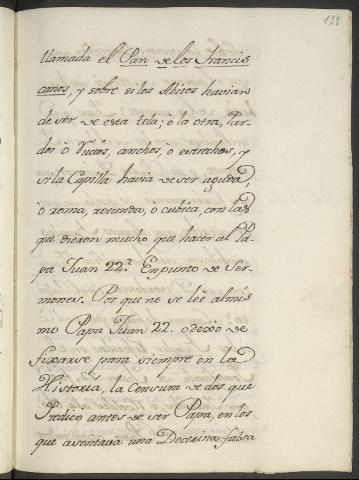 121
llamada el Pan de los Francis
canos, y sobre si los Abitos havian
de ser de esta tela; ò la otra, Par-
dos ò Rucios, anchos, ò estrechos, y
si la Capilla havia de ser aguda,
ò roma, rotunda, ò cubica, con las
que dieron mucho que hacer al Pa-
pa Juan 22.º En punto de Ser-
mones. Por que no se leè al mis
mo Papa Juan 22. o dexò de
fixarse para siempre en la
Historia, la Censura de dos que
Predicò antes de ser Papa, en los
que asentava una Doctrina falsa